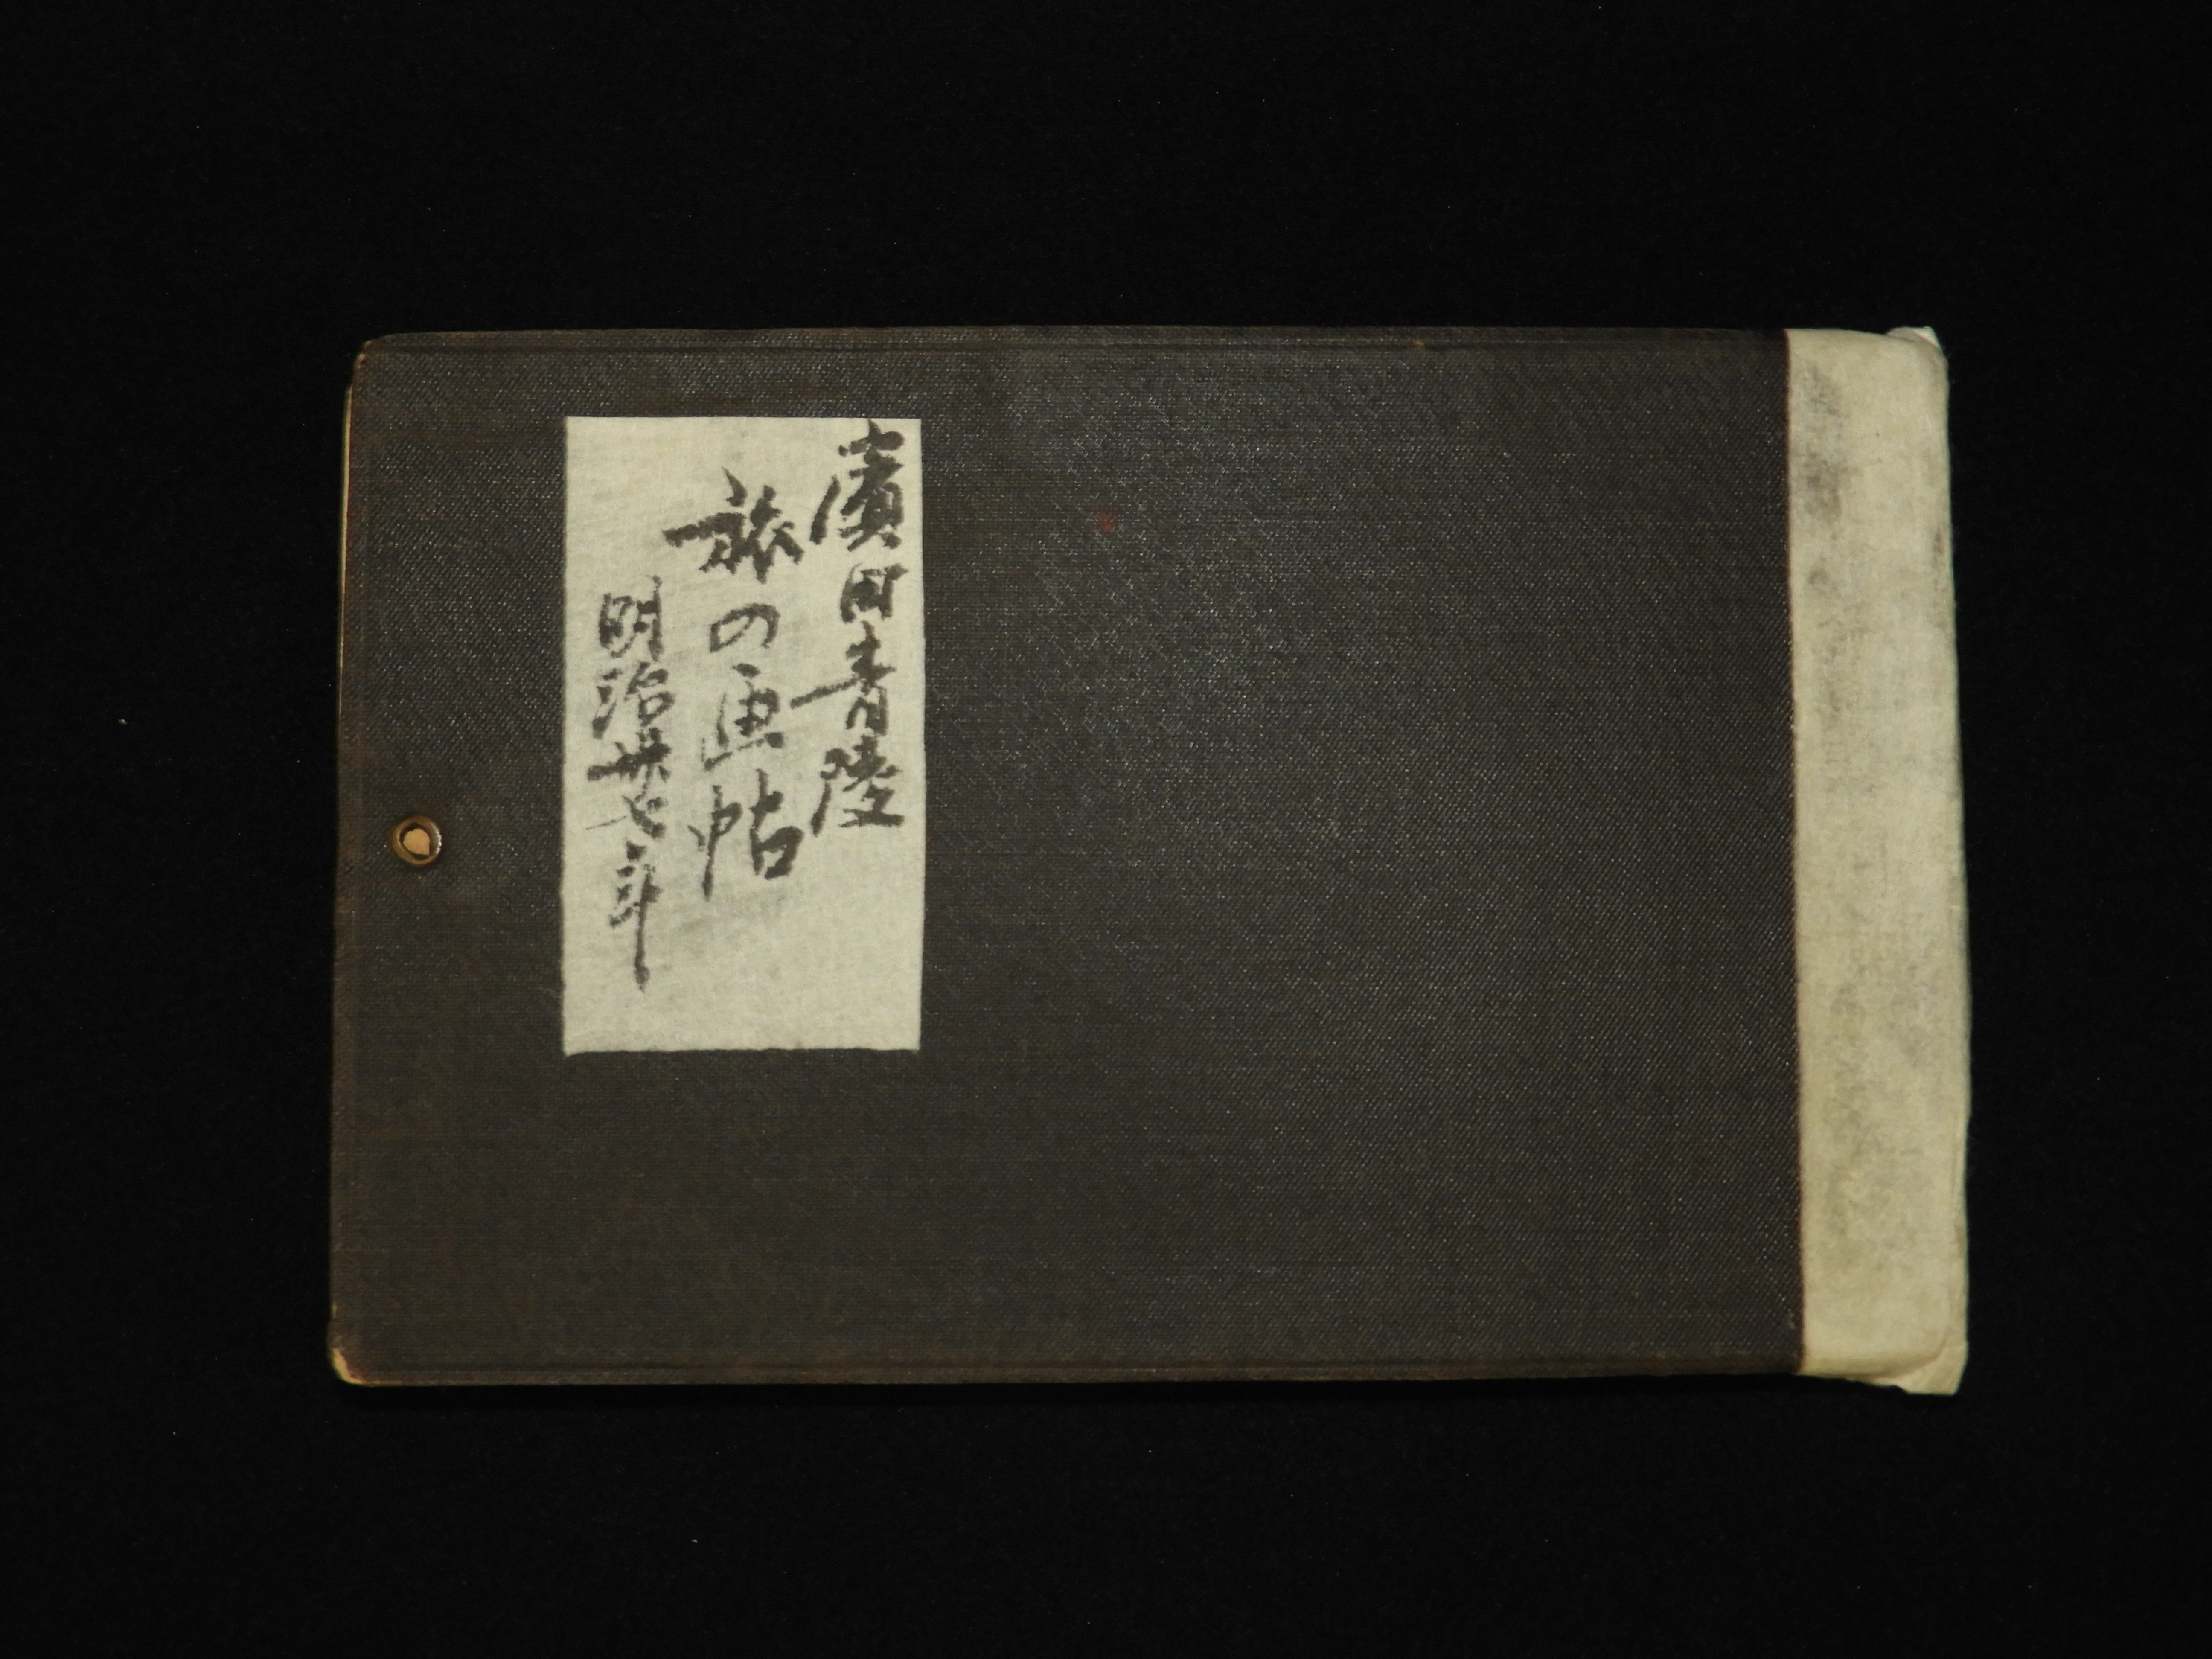 濱田青陵
旅の画帖
明治卅七年